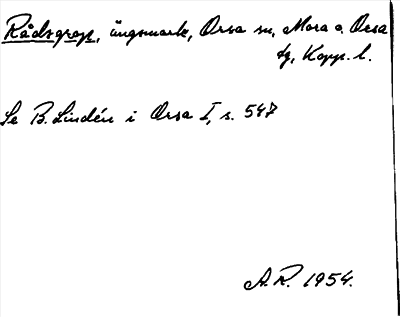 Rådsgrop, ängsmark, Orsa sn, Mora o. Orsa
tg, Kopp. l.
Se B. Lindén i Orsa I, s. 547
A.R. 1954.